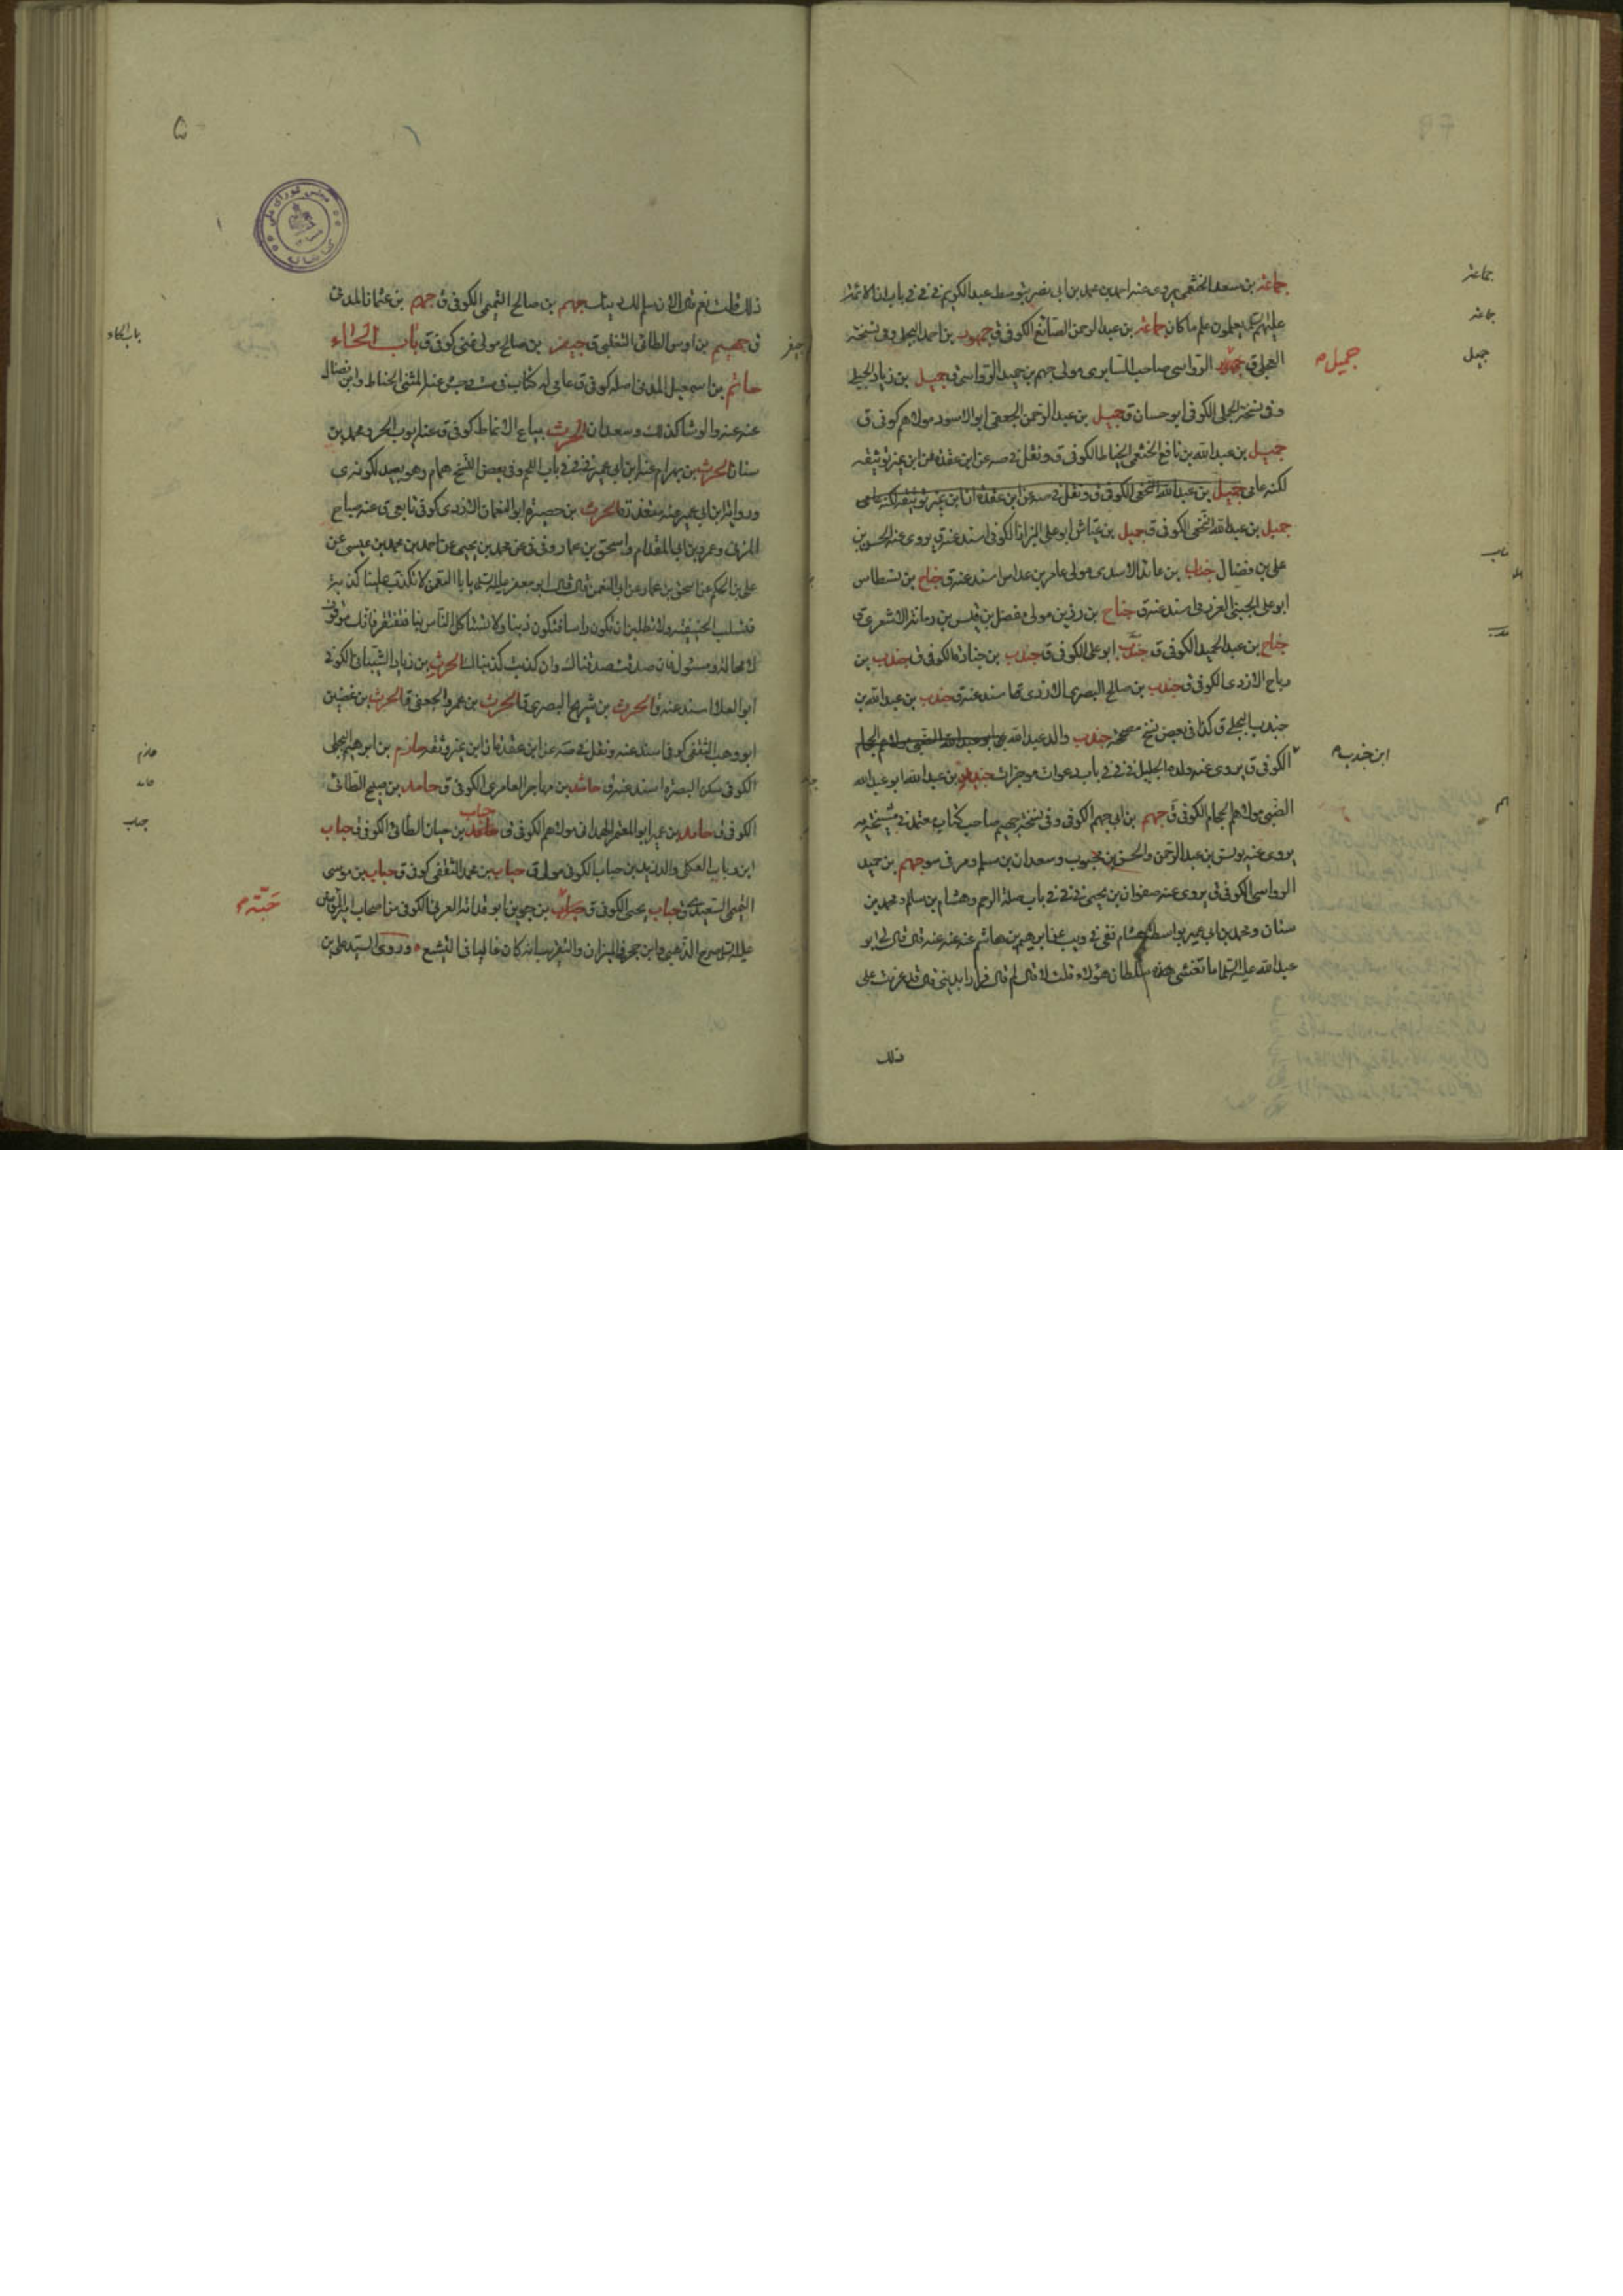 جماعة بن سعد الخثعمي يروي عنه احمد بن محمد بن ابي نصر بتوسط عبد الكريم في في في باب ان الائمة
عليهم يعلمون علم ما كان جماعة بن عبد الرحمن الصائغ الكوفي ق جمهور بن احمد البجلي وفي نسخة
العجلي ق الرواسي صاحب السابري مولى جهم بن حميد الرواسي ق جميل بن زياد الجملي
وفي نسخة البجلي الكوفي ابو حسان ق جميل بن عبد الرحمن الجعفي ابو الاسود مولاهم كوفي ق
جميل بن عبد الله بن نافع الخثعمي الخياط الكوفي ق ونقل في صه عن ابن عقدة عن ابن نمير توثيقه
لكنه عامي جميل بن عبد الله النخعي الكوفي ق ونقل في صه عن ابن عقدة ان ابن نمير توثيقه لكنه عامي
جميل بن عبد الله النخعي الكوفي ق جميل بن عياش ابو علي البزاز الكوفي اسند عنه ق يروي عنه الحسن بن
علي بن فضال جناب بن عائذ الاسدي مولى عامر بن عداس اسند عنه ق جناح بن نسطاس
ابو علي الجنبي العزرمي اسند عنه ق جناح بن رزين مولى مفضل بن قيس بن رمانة الاشعري ق
جناح بن عبد الحميد الكوفي ق جندب ابو علي الكوفي ق جندب بن جنادة الكوفي ق جندب بن
رباح الازدي الكوفي ق جندب بن صالح البصري الازدي قا اسند عنه ق جندب بن عبد الله بن
جندب البجلي ق كذا في بعض نسخ مصححة جندب والد عبد الله ابو عبد الله الضبي مولاهم الحجام
الكوفي ق يروي عنه ولده الجليل في في في باب دعوات موجزات بن عبد الله ابو عبد الله
الضبي مولاهم الحجام الكوفي ق جهم بن ابي جهم الكوفي وفي نسخة جهيم صاحب كتاب معتمد في مشيخة يه
يروي عنه يونس بن عبد الرحمن والحسن بن محبوب وسعدان بن مسلم ومر في سو جهم بن حميد
الرواسي الكوفي ق يروي عنه صفوان بن يحيى في في في باب صلة الرحم وهشام بن سالم ومحمد بن
سنان ومحمد بن ابي عمير بواسطة هشام ففي في ويب عن ابرهيم بن هاشم عنه عنه عنه قال قال لي ابو
عبد الله عليه السلم اما تغشى سلطان هؤلاء قلت لا قال لم قال فرارا بديني قال قد عزمت على
ذلك
جماعة
جماعة
جميل
جميل
ابن جندب
ذلك قلت نعم قال الان سلم لك دينك جهم بن صالح التميمي الكوفي ق جهم بن عثمان المدني
ق جهيم بن اوس الطائي الثعلبي ق جيفر بن صالح مولى كوفي ق باب الحاء
حاتم بن اسمعيل المدني اصله كوفي ق عامي له كتاب في ست وجش عنه المثنى الحناط وابن فضال
عنه عنه والوشا كذلك وسعدان الحرث بياع الانماط كوفي ق عنه ايوب بن الحر ومحمد بن
سنان الحرث بن بهرام عنه ابن ابي عمير في في في باب اللمم وفي بعض النسخ همام وهو بعيد لكونه ى
ورواية ابن ابي عمير عنه متعذرة الحرث بن حصيرة ابو النعمان الازدي كوفي تابعي ق عنه صباح
المزني وعمرو بن ابي المقدام واسحق بن عمار وفي في عن محمد بن يحيى عن احمد بن محمد بن عيسى عن
علي بن الحكم عن اسحق بن عمار عن ابي النعمن قال قال ابو جعفر عليه السلم يا ابا النعمن لا تكذب علينا كذبة
فتسلب الحنيفية ولا تطلبن ان تكون راسا فتكون ذنبا ولا تستاكل الناس بنا فتفتقر فانك موقوف
لا محالة ومسئول فان صدقت صدقناك وان كذبت كذبناك الحرث بن زياد الشيباني الكوفي
ابو العلا اسند عنه ق الحرث بن شريح البصري ق الحرث بن عمرو الجعفي ق الحرث بن غصين
ابو وهب الثقفي كوفي اسند عنه ونقل في صه عن ابن عقدة ان ابن نمير وثقه حازم بن ابرهيم البجلي
الكوفي سكن البصرة اسند عنه ق حاشد بن مهاجر العامري الكوفي ق حامد بن صبيح الطائي
الكوفي ق حامد بن عمير ابو المعتمر الهمداني مولاهم الكوفي ق حباب بن حيان الطائي الكوفي ق حباب
ابن رباب العكلي والد زيد بن حباب الكوفي مولى ق حباب بن محمد الثقفي كوفي ق حباب بن موسى
التميمي السعيدي ق حباب يحيى الكوفي ق بن جوين ابو قدامة العرني الكوفي من اصحاب امير المؤمنين
عليه السلم صرح الذهبي وابن حجر في الميزان والتقريب انه كان غاليا في التشيع وروى السيد علي بن
باب الحاء
جيفر
حازم
حامد
حباب
حبّة